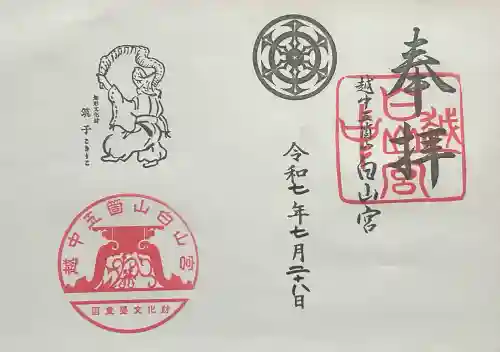 奉拝
越中五箇山白山宮
越中白山宮
令和七年七月二十八日
無形文化財
筑子
こきりこ
越中五箇山白山宮
国重要文化財